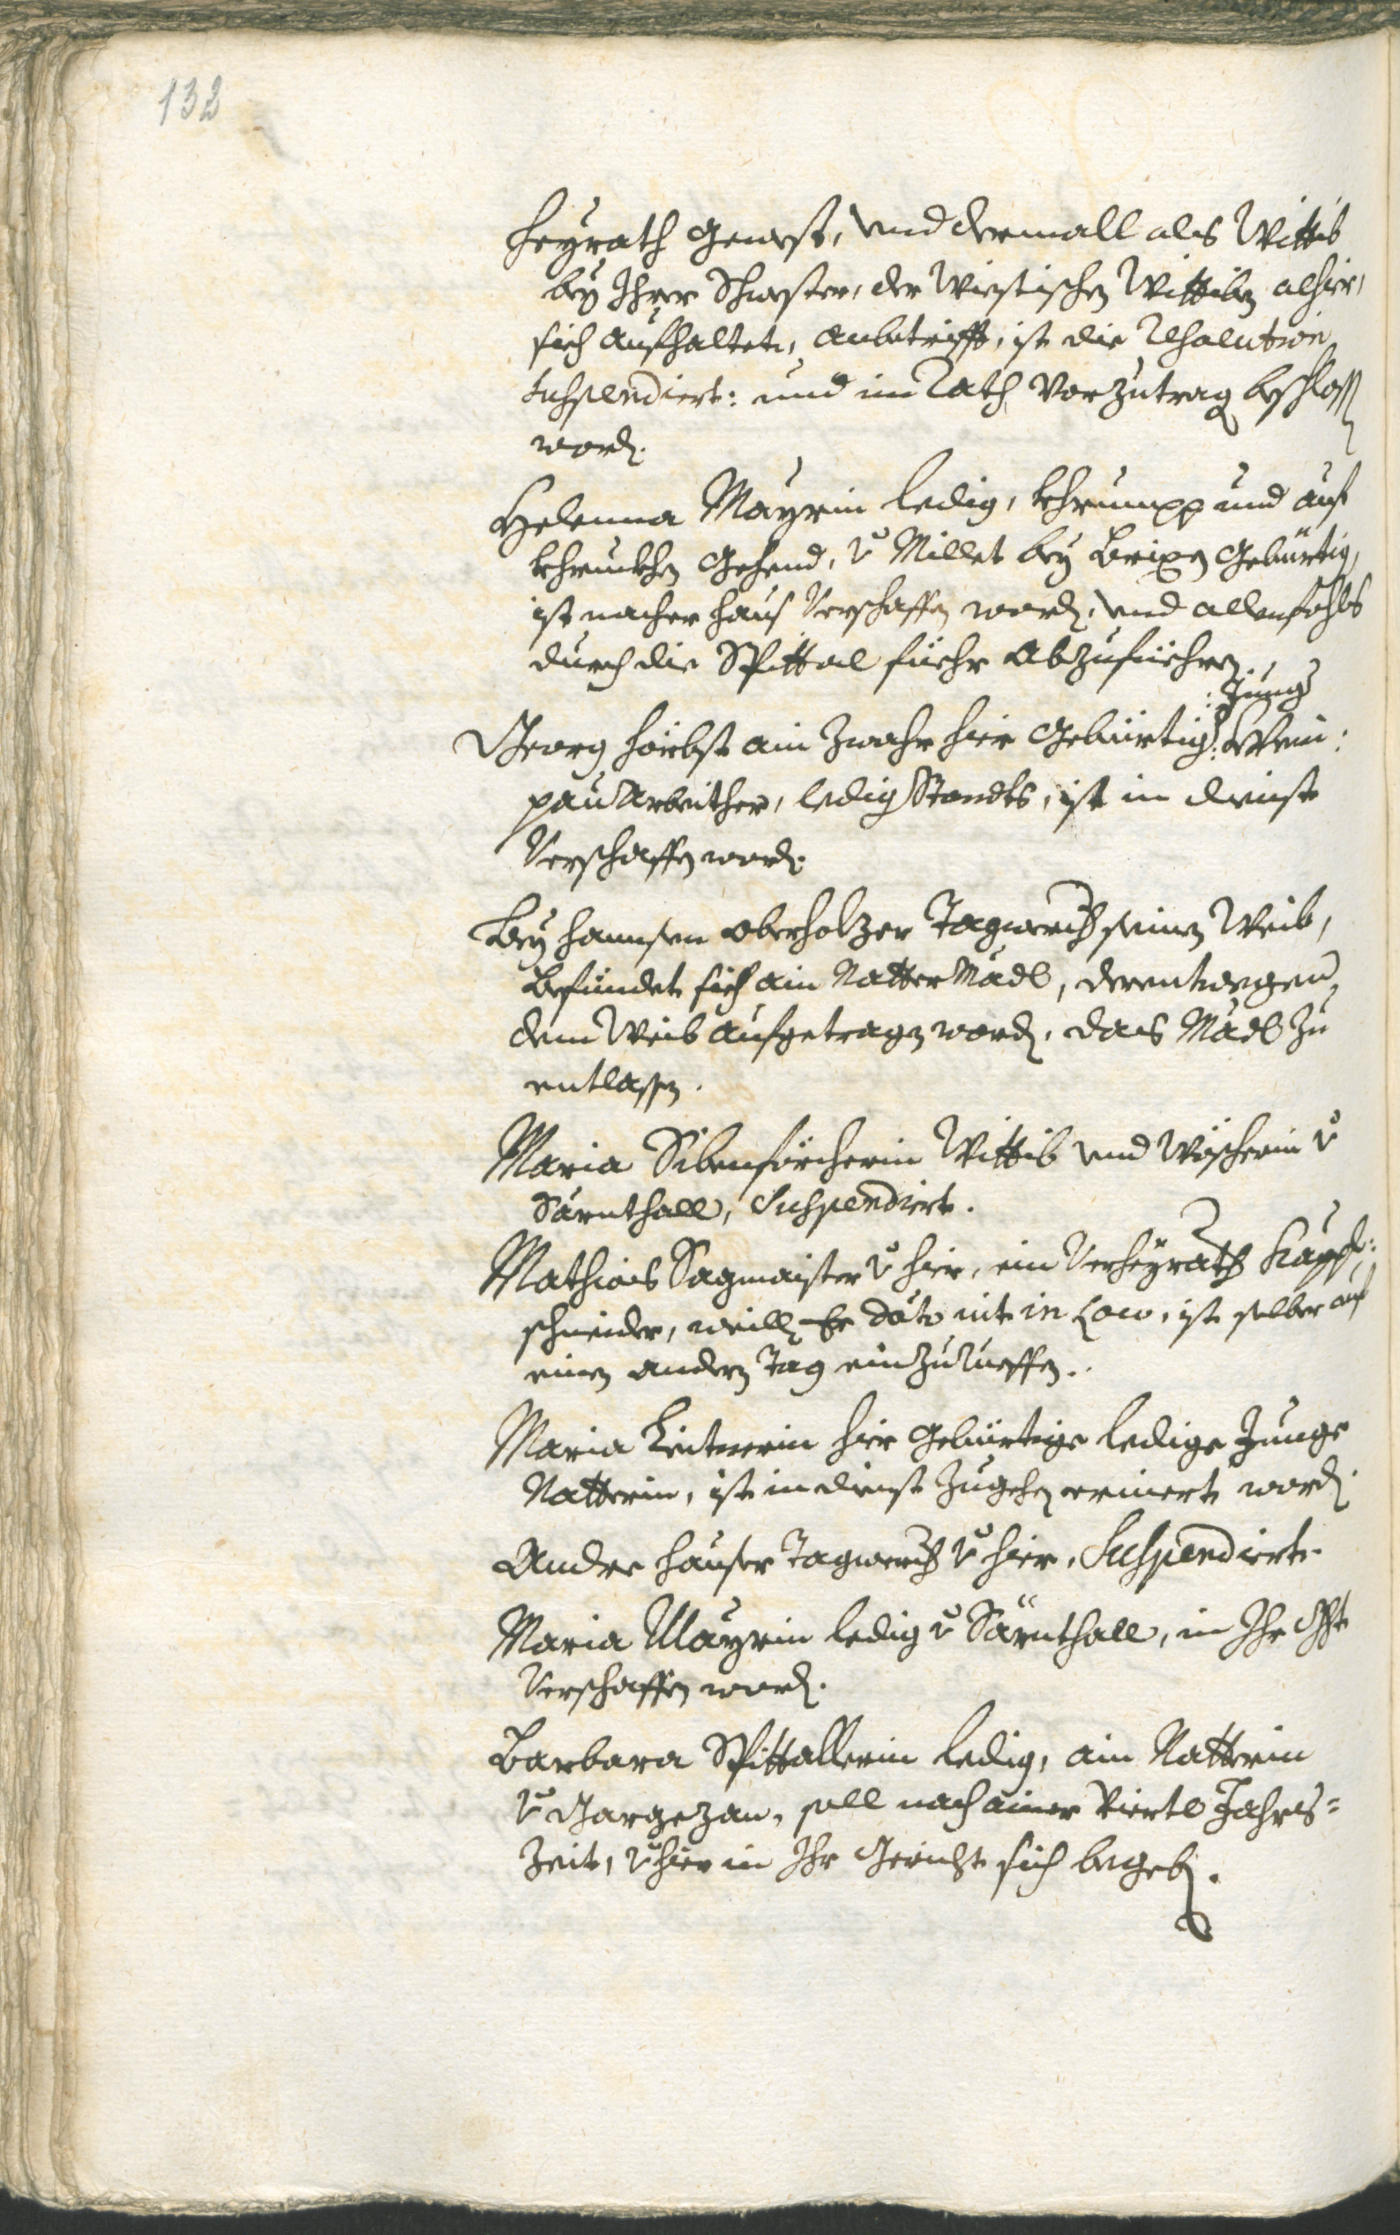 132
heyrath gewest, und dermall als Wittib
bey Ihrer Schwester, der Wiestischen Wittiben alhier,
sich aufhaltet, anbetrifft, ist die Resolution
suspendiert: und im Rath vorzutrag beschloss
word.
Helenna Mayrin ledig, khrumpp und auf
khruckhen gehend, v Millet bey Brixen gebürtig,
ist nacher haus verschaffen word, und allenfahls
durch die Spittal fuehr abzufüehren.
: Jung
Georg hörbst ain zwahr hier gebürtig: Wein:
pau Arbeither, ledig Standts, ist in dienst
verschaffen word.
Bey hannsen oberholzer Tagwerch seinen Weib,
befindet sich ain Natter Mädl, derentwegen
dem Weib aufgetragen word, das Mädl zu
entlassen.
Maria Sibenförcherin Wittib und Wöscherin v
Särnthall, Suspendiert.
Mathias Sagmaister v hier, ein verheyrath
schneider, weill Er dato nit in Loco, ist selber auf
einen andern Tag einzurueffen.
Maria Lintnerin hier gebürtige ledige Junge
Natterin, ist in dienst zugehen erinert word.
Andre hauser Tagwerch v hier, Suspendiert.
Maria Mayrin ledig v Särnthall, in Ihr Ght
verschaffen word.
Barbara Spittallerin ledig, ain Natterin
v Gargezan, soll nach ainer Viertl Jahrs=
Zeit, v hier in Ihr Gericht sich begeb.